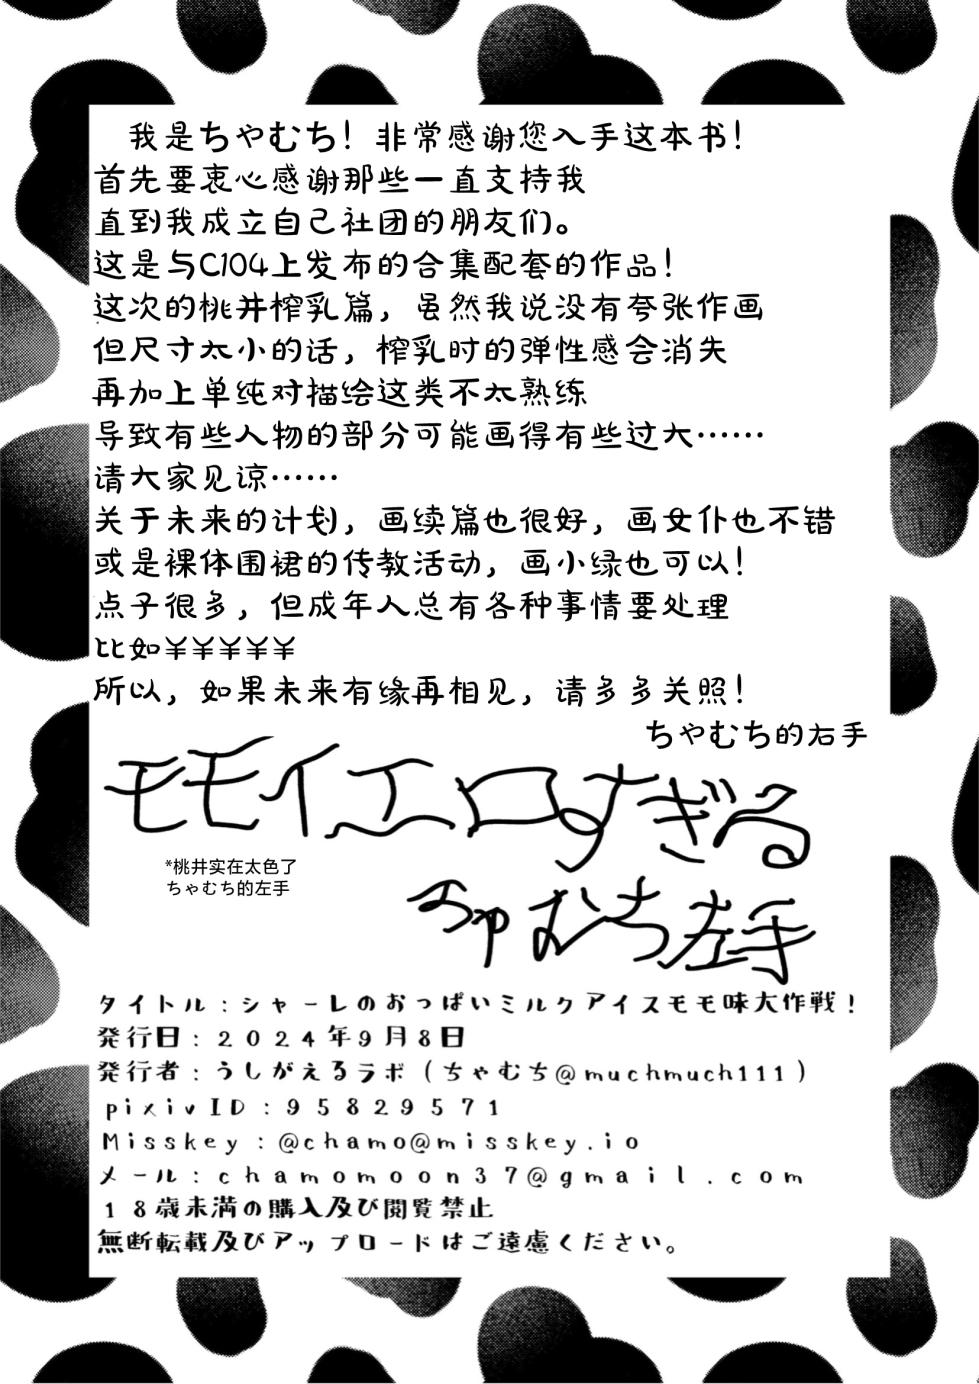 我是ちゃむち！非常感谢您入手这本书！
首先要衷心感谢那些一直支持我
直到我成立自己社团的朋友们。
这是与C104上发布的合集配套的作品！
这次的桃井榨乳篇，虽然我说没有夸张作画
但尺寸太小的话，榨乳时的弹性感会消失
再加上单纯对描绘这类不太熟练
导致有些人物的部分可能画得有些过大……
请大家见谅……
关于未来的计划，画续篇也很好，画女仆也不错
或是裸体围裙的传教活动，画小绿也可以！
点子很多，但成年人总有各种事情要处理
比如￥￥￥￥￥
所以，如果未来有缘再相见，请多多关照！
ちゃむち的右手
モモイエロすぎる
*桃井实在太色了
ちゃむち的左手
ちゃむち左手
タイトル：シャーレのおっぱいミルクアイスモモ味大作戦！
発行日：２０２４年９月８日
発行者：うしがえるラボ（ちゃむち@muchmuch111）
pixivID：９５８２９５７１
Misskey：@chamo@misskey.io
メール：chamomoon37@gmail.com
１８歳未満の購入及び閲覧禁止
無断転載及びアップロードはご遠慮ください。